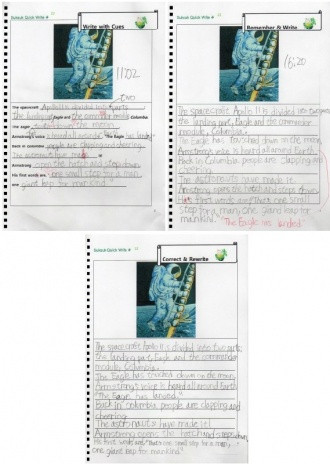 Write with Cues
11:02
two
The spacecraft Apollo 11 is divided into parts
the landing Eagle and the command module Columbia.
The Eagle the moon.
Armstrong's voice is heard all around. "The Eagle has landed"
Back in Columbia people are clapping and cheering.
The astronauts have made it.
Armstrong opens the hatch and steps down.
His first words are: one small step for a man,
one giant leap for mankind."
Remember & Write
16:20
The spacecraft Apollo 11 is divided into two parts
the landing part, Eagle and the commander
module, Columbia.
The Eagle has touched down on the moon.
Armstrong's voice is heard all around Earth.
Back in Columbia, people are clapping and
cheering.
The astronauts have made it.
Armstrong opens the hatch and steps down
His first words are "That's one small
step for a man, one giant leap for
mankind."
"The Eagle has landed"
Correct & Rewrite
The spacecraft Apollo 11 is divided into two parts:
the landing part, Eagle and the commander
module, Columbia.
The Eagle has touched down on the moon.
Armstrong's voice is heard all around Earth
"The Eagle has landed."
Back in Columbia people are clapping and
cheering.
The astronauts have made it!
Armstrong opens the hatch and steps down
His first words are "That's one small step for a man,
one giant leap for mankind."